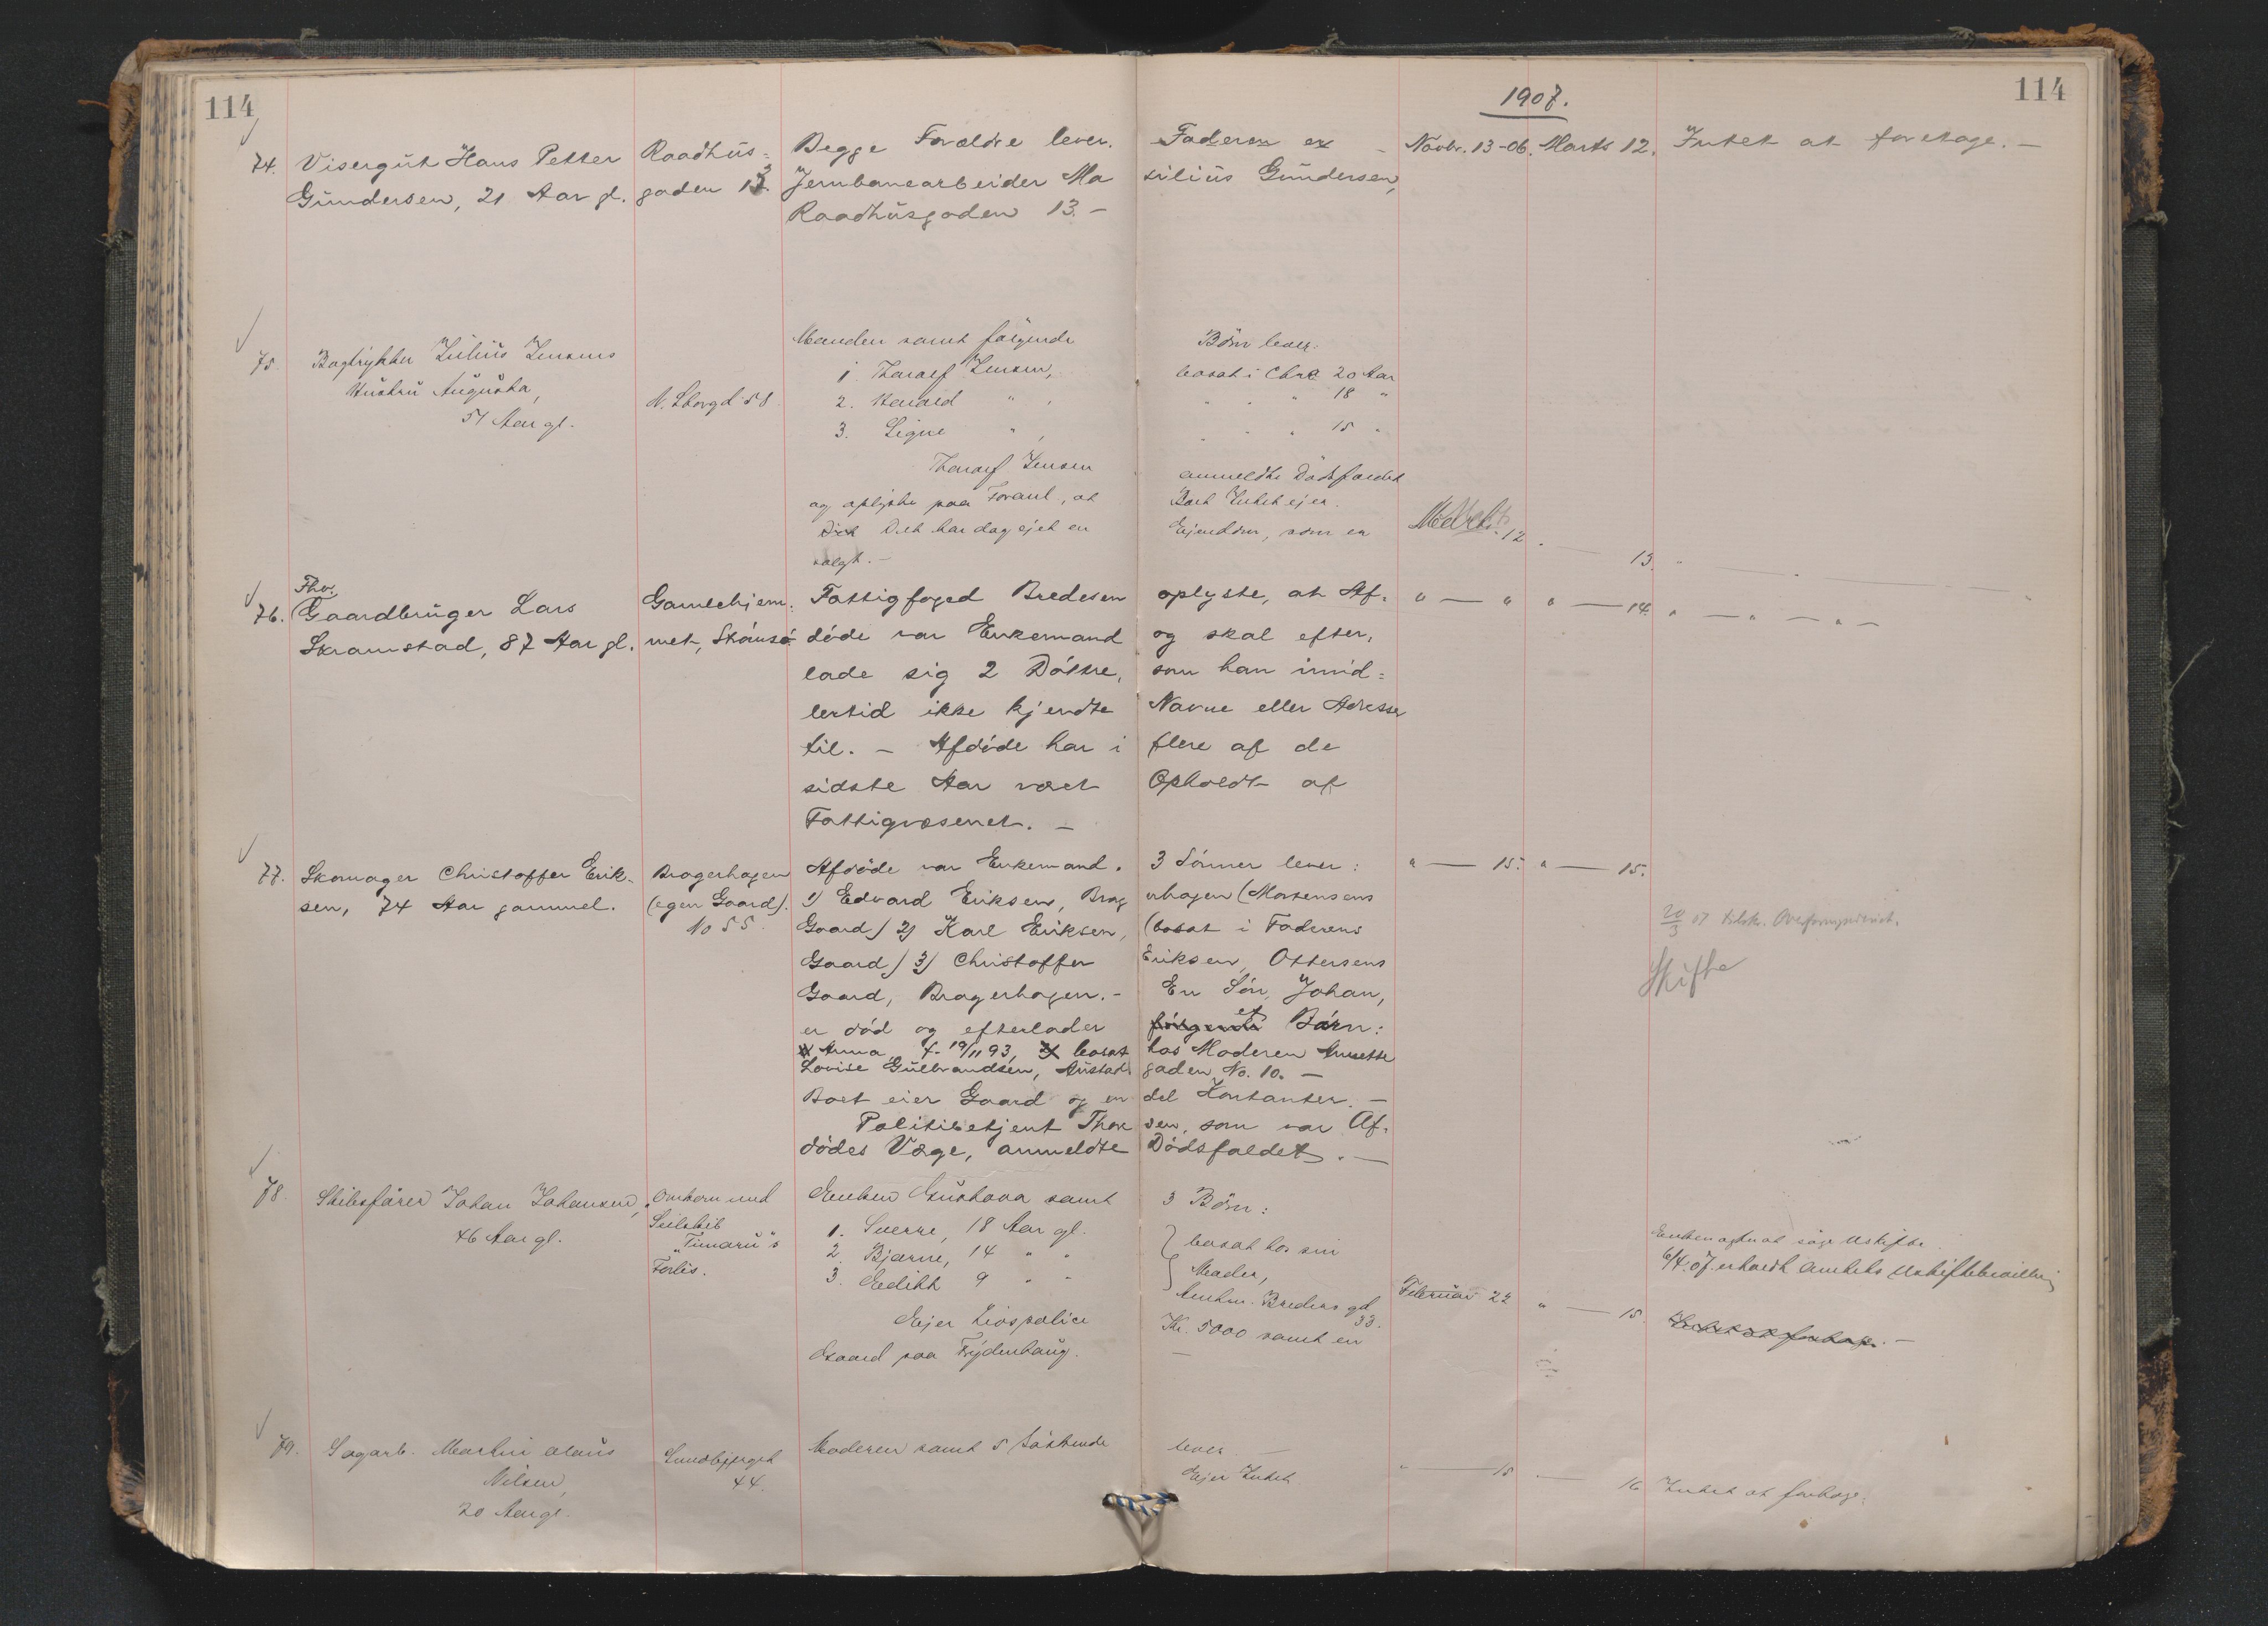 114
114
1907.
74. Visergut Hans Petter Raadhus= Begge Forældre lever. Faderen er – Novbr. 13-06. Marts 12. Intet at foretage. –
Gundersen, 21 Aar gl. gaden 13. Jernbanearbeider Ma silius Gundersen,
Raadhusgaden 13. –
75. Bogtrykker Julius Jensens Manden samt følgende Børn lever.
Hustru Augusta, 1. Tharalf Jensen, bosat i Chra 20 Aar
51 Aar gl. N. Storgd 58. 2. Harald " , " " " 18 "
3. Signe " , " " " 15 "
Tharalf Jensen anmeldte Dødsfaldet
og oplyste paa Foranl., at Boet Intet ejer.
Det har dog ejet en Ejendom, som er Marts 12 – 13. " – " –
solgt. –
76. Fhv.
Gaardbruger Lars Gamlehjem= Fattigfoged Bredesen oplyste, at Af= " – " " – 14. " – " – " –
Skramstad, 87 Aar gl. met, Strømsø døde var Enkemand og skal efter=
lade sig 2 Døttre, som han imid=
lertid ikke kjendte Navne eller Adresser
til. – Afdøde har i flere af de
sidste Aar været Opholdt af
Fattigvæsenet. –
77. Skomager Christoffer Erik= Bragerhagen Afdøde var Enkemand. 3 Sønner lever: " – 15. " – 15.
sen, 74 Aar gammel. (egen Gaard). 1) Edvard Eriksen, Brag erhagen (Mortensens
No 55. Gaard) 2) Karl Eriksen, (bosat i Faderens
20/3 07
Gaard) 3) Christoffer Eriksen, Ottersens
Skifte
Gaard, Bragerhagen. – En Søn, Johan,
er død og efterlader følgende et Børn:
Anna, f. 19/11 93, bosat hos Moderen Annette
Lovise Gulbrandsen, Austad gaden No. 10. –
Boet eier Gaard og en del Kontanter. –
Politibetjent Thor sen, som var Af=
dødes Værge, anmeldte Dødsfaldet. –
78. Skibsfører Johan Johansen, Omkom med Enken Gustava samt 3 Børn:
46 Aar gl. Seilskib 1. Sverre, 18 Aar gl. Enken agter at søge Uskifte.
"Timaru"s 2. Bjarne, 14 " " bosat hos sin
Forlis. 3. Edith 9 " " Moder, 6/4. 07. erholdt Amtets Uskiftebevilling
Bredersgd 33. Februar 22 " – 15. Intet at foretage. –
Ejer Livspolice Kr. 5000 samt en
Gaard paa Frydenhaug. –
79. Sagarb. Martin Olaus Sundbjerget Moderen samt 5 Søskende lever. –
Nilsen, 44. Ejer Intet " – 15 – 16 Intet at foretage.
20 Aar gl.